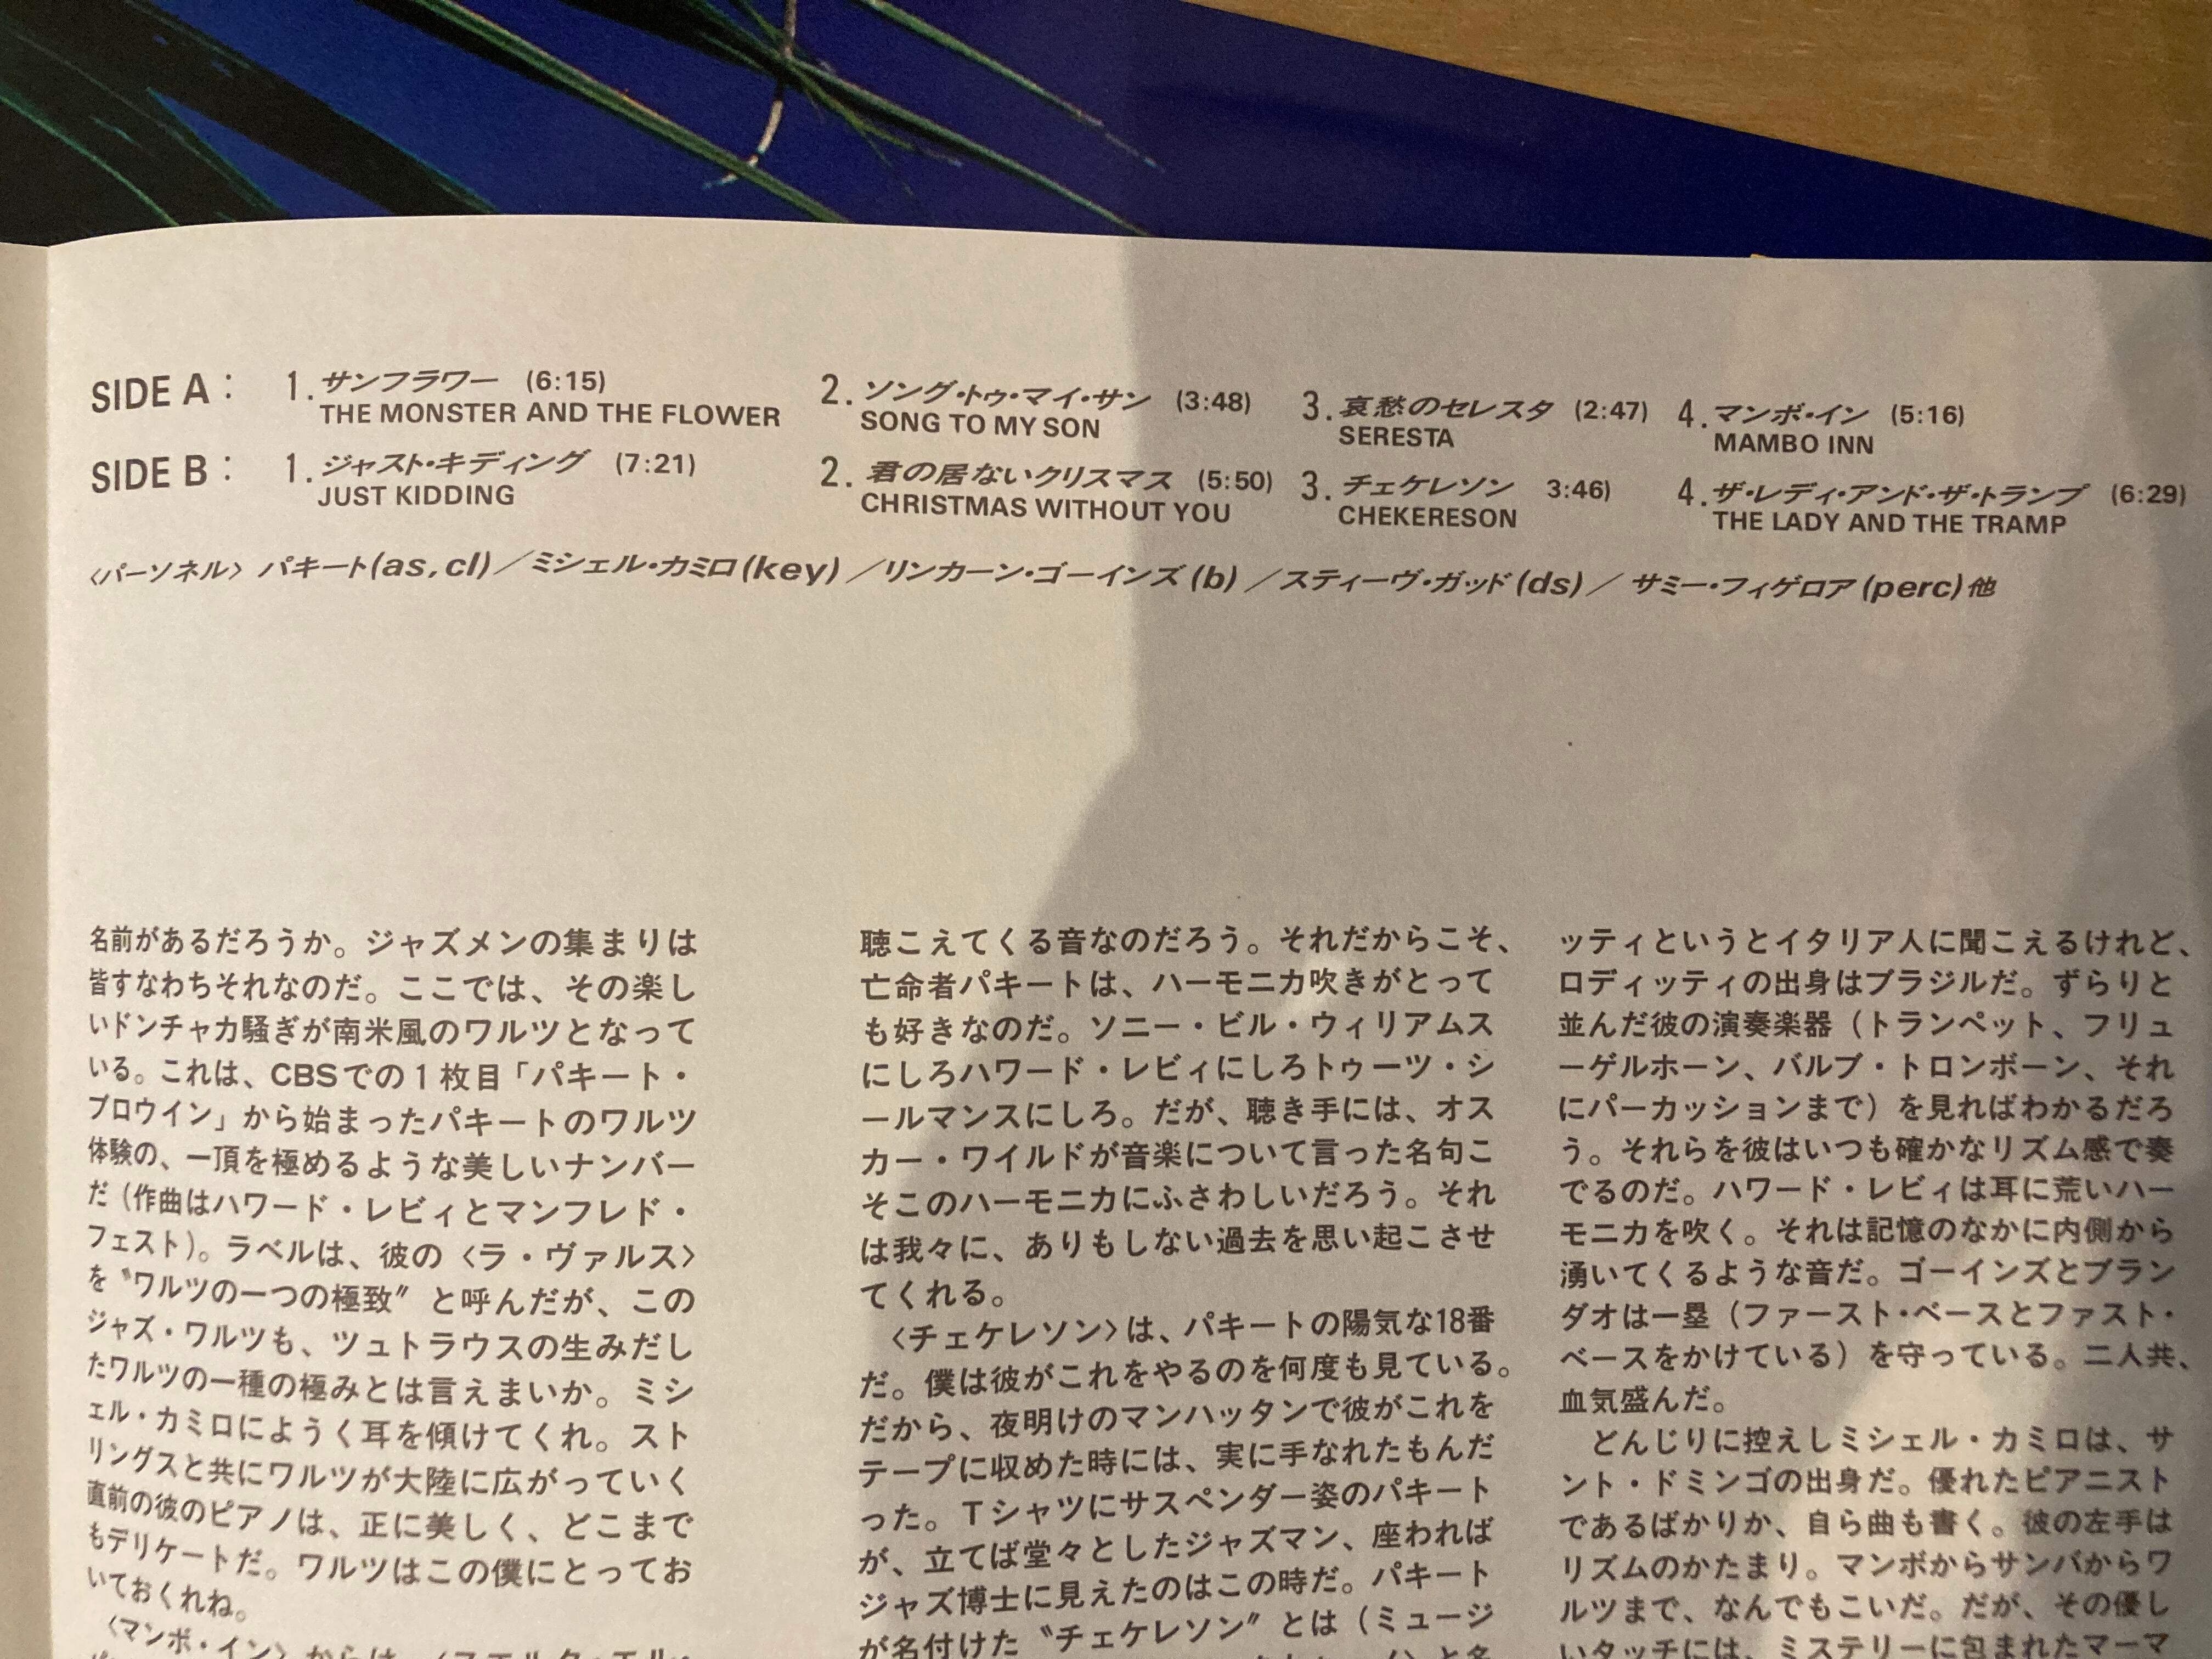 SIDE A : 1. サンフラワー (6:15) 2. ソング・トゥ・マイ・サン (3:48) 3. 哀愁のセレスタ (2:47) 4. マンボ・イン (5:16)
THE MONSTER AND THE FLOWER SONG TO MY SON SERESTA MAMBO INN
SIDE B : 1. ジャスト・キディング (7:21) 2. 君の居ないクリスマス (5:50) 3. チェケレソン 3:46) 4. ザ・レディ・アンド・ザ・トランプ (6:29)
JUST KIDDING CHRISTMAS WITHOUT YOU CHEKERESON THE LADY AND THE TRAMP
〈パーソネル〉 パキート(as, cl)／ミシェル・カミロ(key)／リンカーン・ゴーインズ(b)／スティーヴ・ガッド(ds)／サミー・フィゲロア(perc)他
名前があるだろうか。ジャズメンの集まりは
皆すなわちそれなのだ。ここでは、その楽し
いドンチャカ騒ぎが南米風のワルツとなって
いる。これは、CBSでの1枚目「パキート・
ブロウイン」から始まったパキートのワルツ
体験の、一頂を極めるような美しいナンバー
だ（作曲はハワード・レビィとマンフレド・
フェスト）。ラベルは、彼の〈ラ・ヴァルス〉
を〝ワルツの一つの極致〟と呼んだが、この
ジャズ・ワルツも、ツュトラウスの生みだし
たワルツの一種の極みとは言えまいか。ミシ
ェル・カミロにようく耳を傾けてくれ。スト
リングスと共にワルツが大陸に広がっていく
直前の彼のピアノは、正に美しく、どこまで
もデリケートだ。ワルツはこの僕にとってお
いておくれね。
〈マンボ・イン〉からは、
聴こえてくる音なのだろう。それだからこそ、
亡命者パキートは、ハーモニカ吹きがとって
も好きなのだ。ソニー・ビル・ウィリアムス
にしろハワード・レビィにしろトゥーツ・シ
ールマンスにしろ。だが、聴き手には、オス
カー・ワイルドが音楽について言った名句こ
そこのハーモニカにふさわしいだろう。それ
は我々に、ありもしない過去を思い起こさせ
てくれる。
〈チェケレソン〉は、パキートの陽気な18番
だ。僕は彼がこれをやるのを何度も見ている。
だから、夜明けのマンハッタンで彼がこれを
テープに収めた時には、実に手なれたもんだ
った。Tシャツにサスペンダー姿のパキート
が、立てば堂々としたジャズマン、座われば
ジャズ博士に見えたのはこの時だ。パキート
が名付けた〝チェケレソン〟とは（ミュージ
ッティというとイタリア人に聞こえるけれど、
ロディッティの出身はブラジルだ。ずらりと
並んだ彼の演奏楽器（トランペット、フリュ
ーゲルホーン、バルブ・トロンボーン、それ
にパーカッションまで）を見ればわかるだろ
う。それらを彼はいつも確かなリズム感で奏
でるのだ。ハワード・レビィは耳に荒いハー
モニカを吹く。それは記憶のなかに内側から
湧いてくるような音だ。ゴーインズとブラン
ダオは一塁（ファースト・ベースとファスト・
ベースをかけている）を守っている。二人共、
血気盛んだ。
どんじりに控えしミシェル・カミロは、サ
ント・ドミンゴの出身だ。優れたピアニスト
であるばかりか、自ら曲も書く。彼の左手は
リズムのかたまり。マンボからサンバからワ
ルツまで、なんでもこいだ。だが、その優し
いタッチには、ミステリーに包まれたマーマ